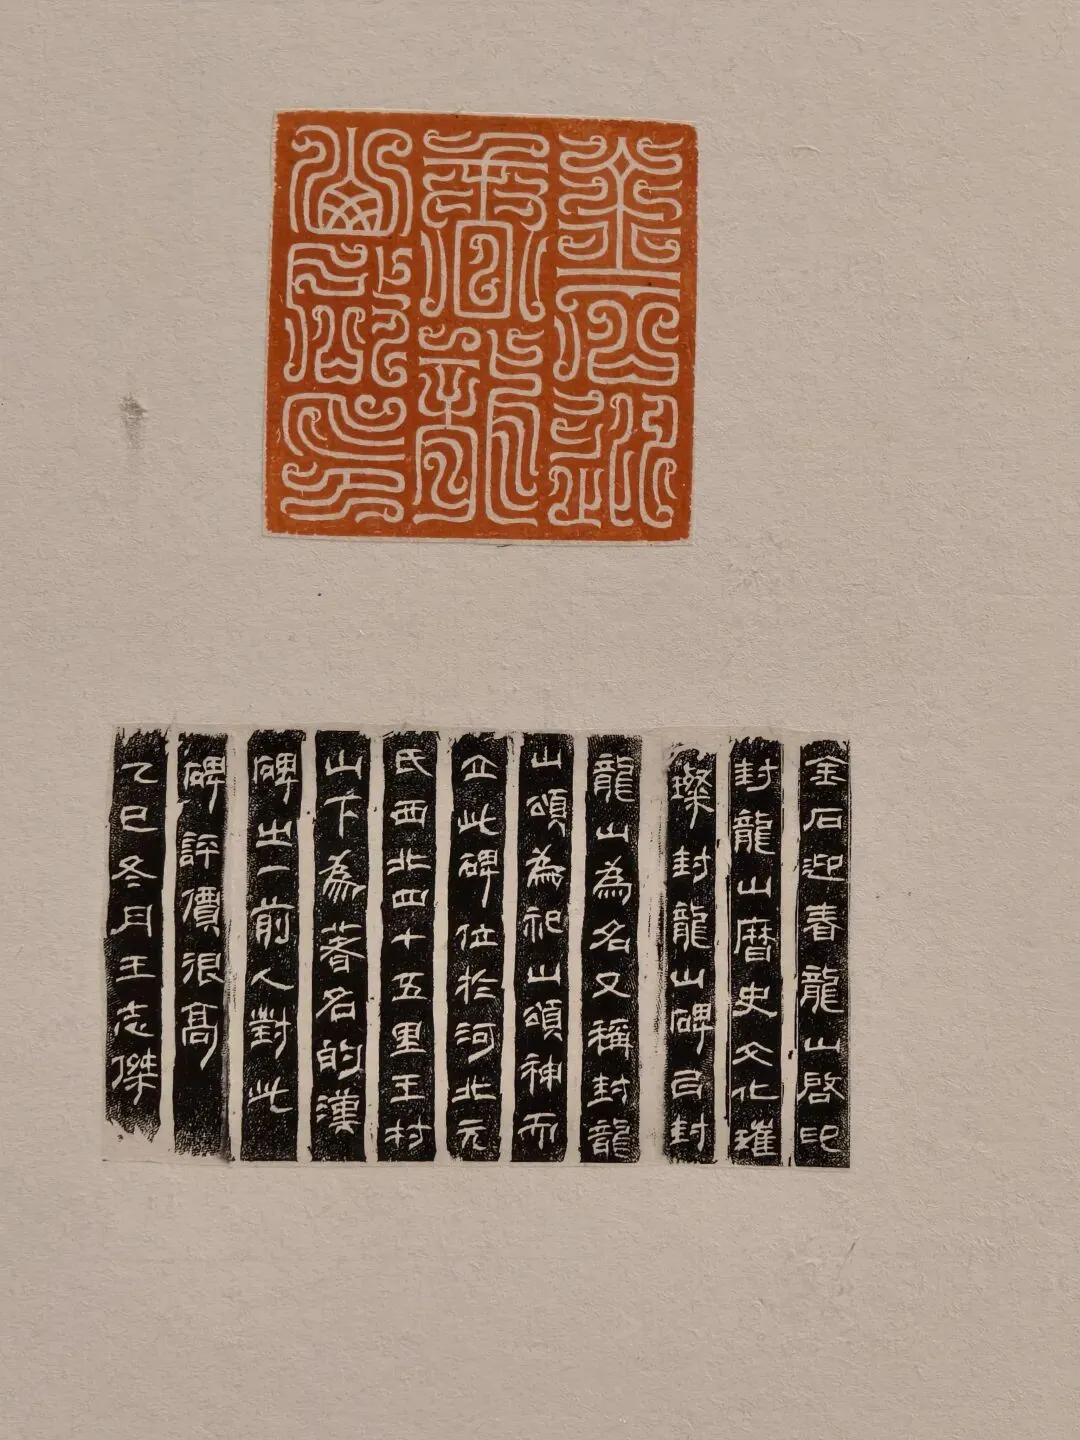 金石迎
春龍
山啟印
金石迎春龍山啓印
封龍山曆史文化璀
璨封龍山碑㠯封
龍山為名又稱封龍
山頌為祀山頌神而
立此碑位扵河北元
氏西北四十五里王村
山下為著名的漢
碑之一前人對此
碑評價很高
乙巳冬月王志傑